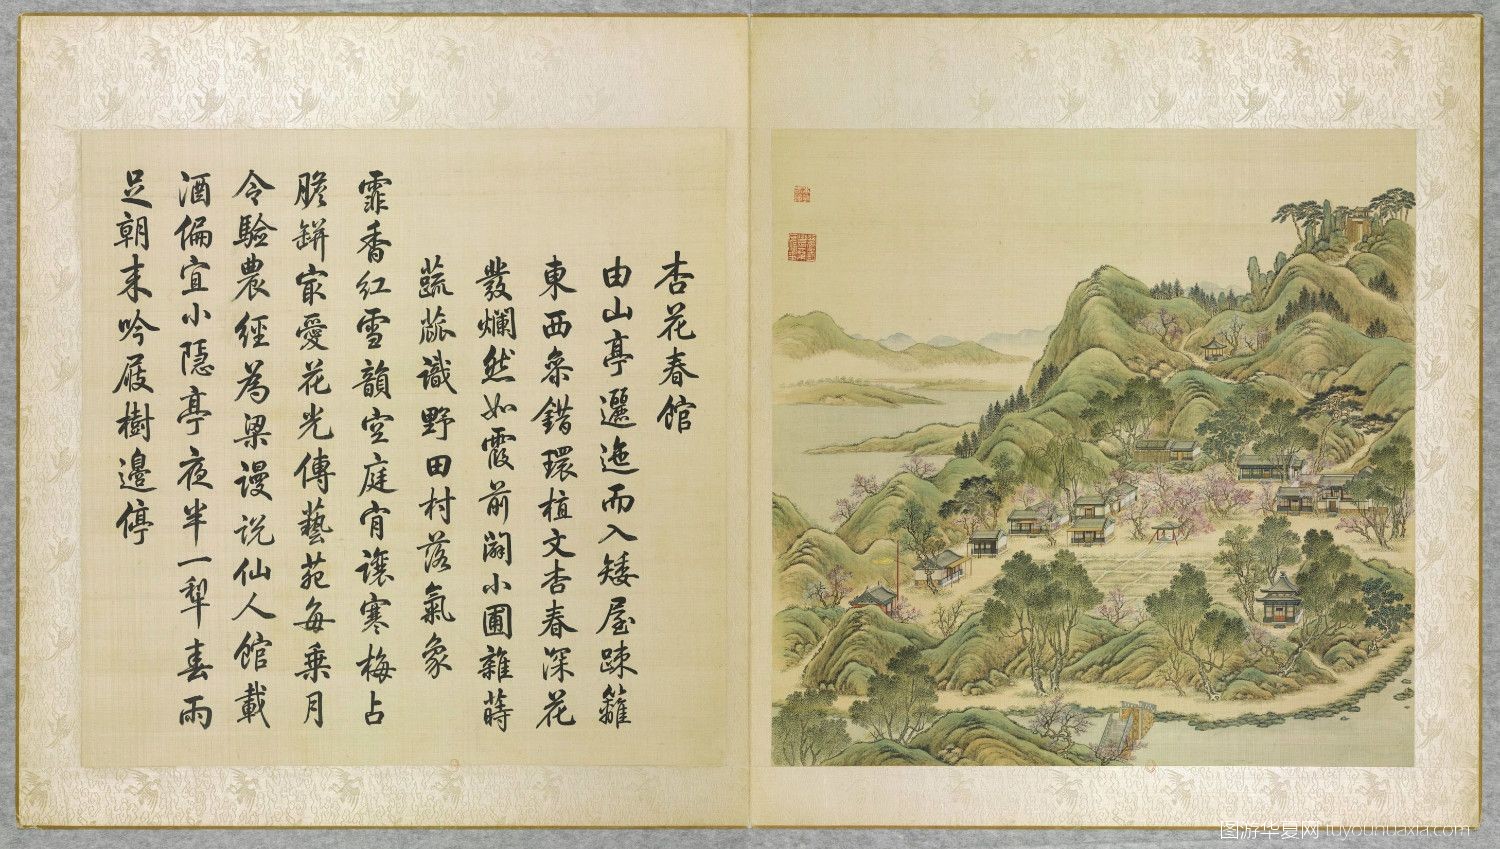 杏花春館
由山亭邐迤而入矮屋疎籬
東西叅錯環植文杏春深花
發爛然如霞前闢小圃雜蒔
蔬蓏識野田村落氣象
霏香紅雪韻空庭肯讓寒梅占
膽缾㝡愛花光傳藝苑每乗月
令驗農經為梁謾説仙人館載
酒偏宜小隱亭夜半一犂春雨
足朝来吟屐樹邉停
图游华夏网 tuyouhuaxia.com